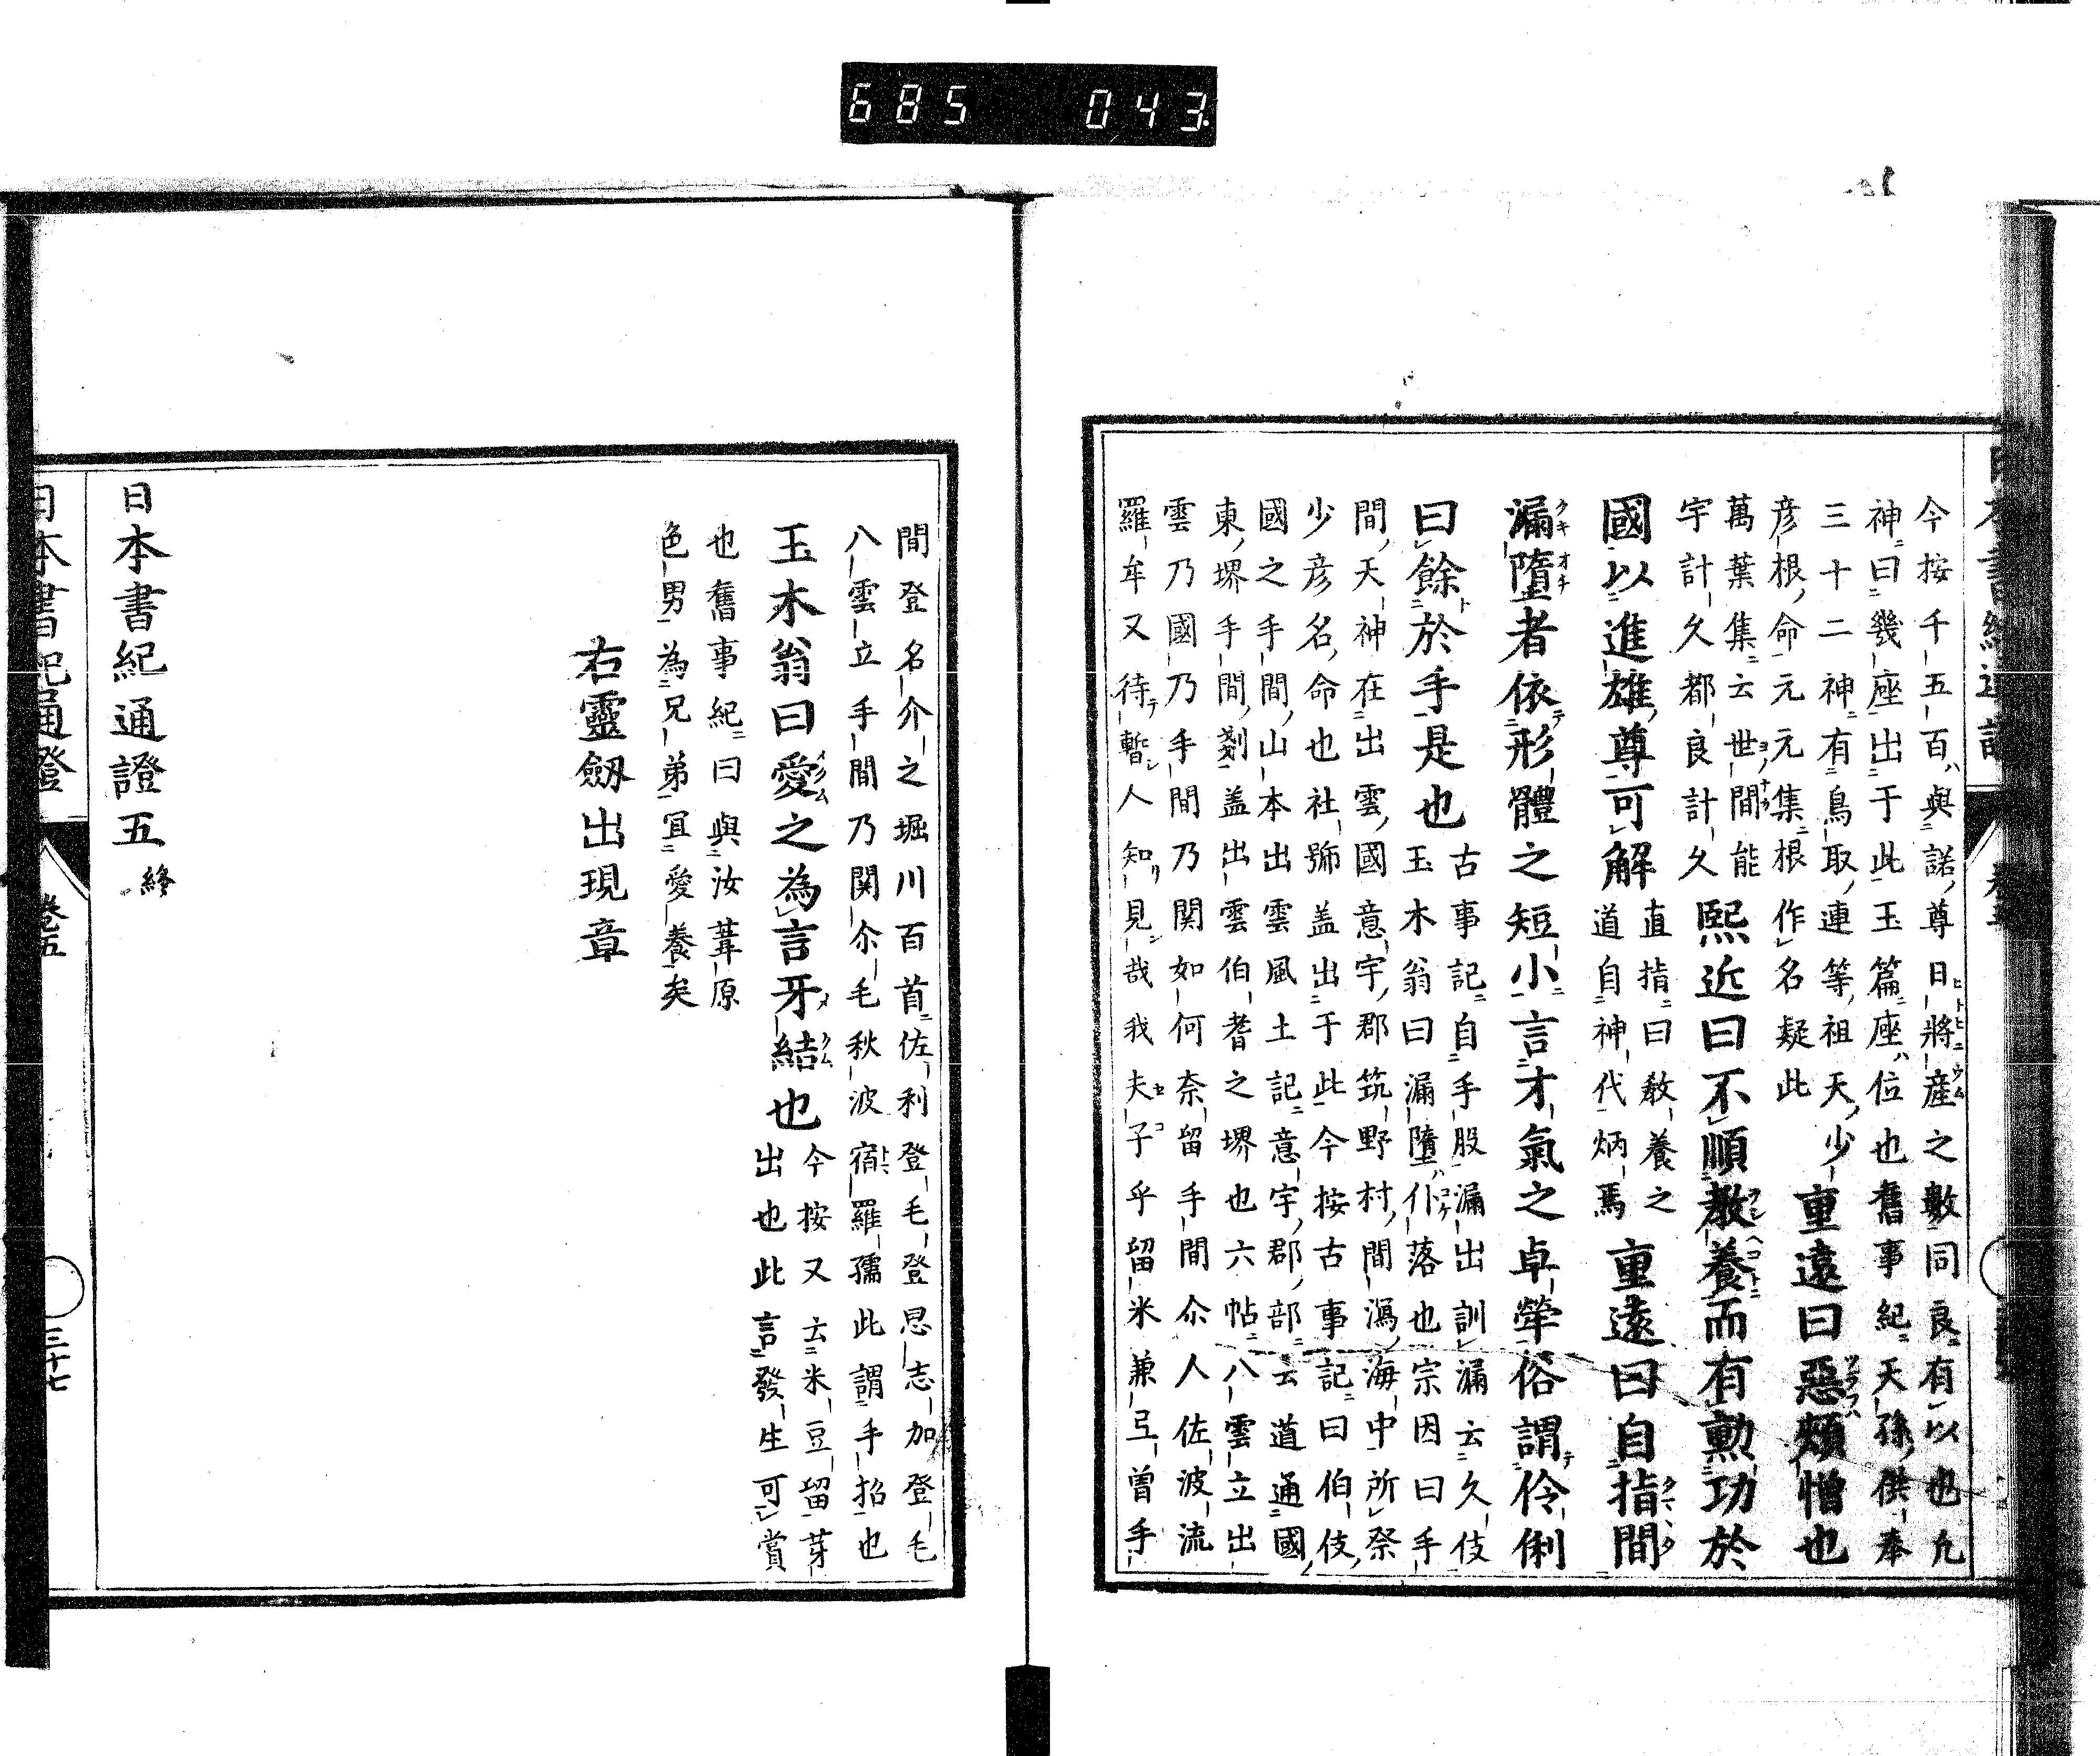 685 043
今按千五百與諾尊日將產之數同良有以也允
神曰幾座出于此玉篇座位也舊事紀天孫供奉
三十二神有鳥取連等祖天少
彦根命元元集根作名疑此
重遠曰惡頰憎也
萬葉集云世間能
宇計久都良計久
熙近曰不順教養而有勲功於
國以進雄尊可解
直指曰教養之
道自神代炳焉
重遠曰自指間
漏墮者依形體之短小言才氣之卓犖俗謂伶俐
曰餘於手是也
古事記自手股漏出訓漏云久伎
玉木翁曰漏墮仆落也宗因曰手
間天神在出雲國意宇郡筑野村間潟海中所祭
少彦名命也社號盖出于此今按古事記曰伯伎
國之手間山本出雲風土記意宇郡部云道通國
東堺手間剗盖出雲伯耆之堺也六帖八雲立出
雲乃國乃手間乃関如何奈留手間尒人佐波流
羅牟又待暫人知見哉我夫子乎留米兼弖曽手
間登名介之堀川百首佐利登毛登思志加登毛
八雲立手間乃関尒毛秋波宿羅孺此謂手招也
玉木翁曰愛之為言牙結也
今按又云米豆留芽
出也此言發生可賞
也舊事紀曰與汝葦原
色男為兄弟冝愛養矣
右靈劔出現章
日本書紀通證五終
日本書紀通證 卷五 三十七